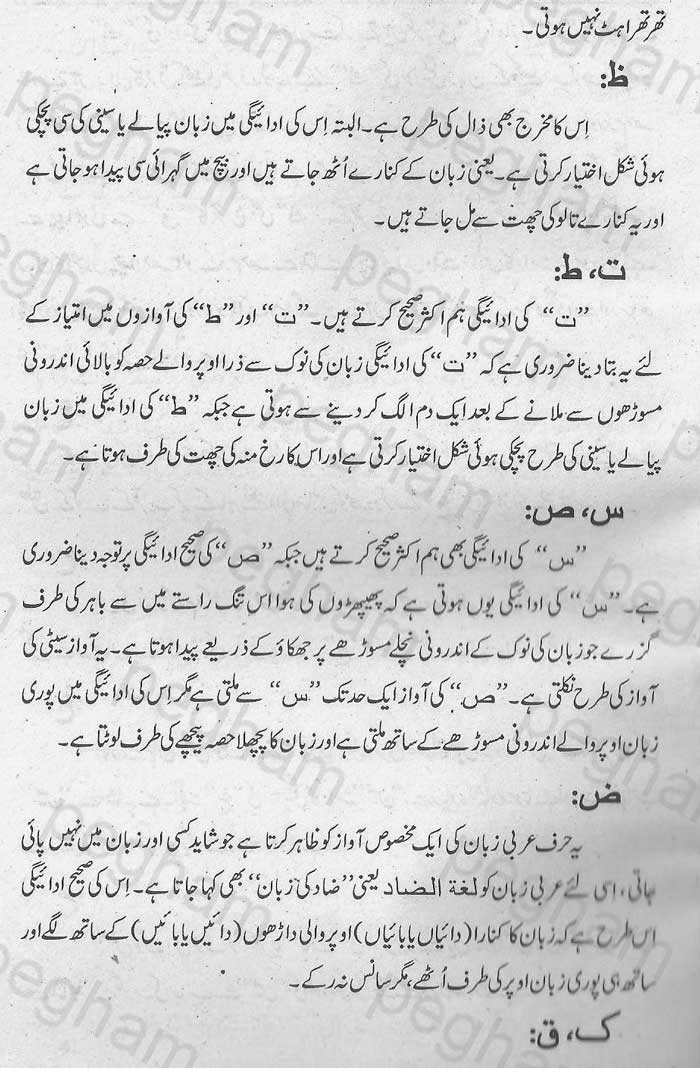 تھرتھراہٹ نہیں ہوتی۔
ظ:
اِس کا مخرج بھی ذال کی طرح ہے۔ البتہ اِس کی ادائیگی میں زبان پیالے یا سینی کی سی پچکی
ہوئی شکل اختیار کرتی ہے۔ یعنی زبان کے کنارے اُٹھ جاتے ہیں اور بیچ میں گہرائی سی پیدا ہو جاتی ہے
اور یہ کنارے تالو کی چھت سے مل جاتے ہیں۔
ت، ط:
”ت“ کی ادائیگی ہم اکثر صحیح کرتے ہیں۔ ”ت“ اور ”ط“ کی آوازوں میں امتیاز کے
لئے یہ بتا دینا ضروری ہے کہ ”ت“ کی ادائیگی زبان کی نوک سے ذرا اوپر والے حصہ کو بالائی اندرونی
مسوڑھوں سے ملانے کے بعد ایک دم الگ کر دینے سے ہوتی ہے جبکہ ”ط“ کی ادائیگی میں زبان
پیالے یا سینی کی طرح پچکی ہوئی شکل اختیار کرتی ہے اور اس کا رخ منہ کی چھت کی طرف ہوتا ہے۔
س، ص:
”س“ کی ادائیگی بھی ہم اکثر صحیح کرتے ہیں جبکہ ”ص“ کی صحیح ادائیگی پر توجہ دینا ضروری
ہے۔ ”س“ کی ادائیگی یوں ہوتی ہے کہ پھیپھڑوں کی ہوا اس تنگ راستے میں سے باہر کی طرف
گزرے جو زبان کی نوک کے اندرونی نچلے مسوڑھے پر جھکاؤ کے ذریعے پیدا ہوتا ہے۔ یہ آواز سیٹی کی
آواز کی طرح نکلتی ہے۔ ”ص“ کی آواز ایک حد تک ”س“ سے ملتی ہے مگر اِس کی ادائیگی میں پوری
زبان اوپر والے اندرونی مسوڑھے کے ساتھ ملتی ہے اور زبان کا پچھلا حصہ پیچھے کی طرف لوٹتا ہے۔
ض:
یہ حرف عربی زبان کی ایک مخصوص آواز کو ظاہر کرتا ہے جو شاید کسی اور زبان میں نہیں پائی
جاتی، اسی لئے عربی زبان کو لغة الضاد یعنی ”ضاد کی زبان“ بھی کہا جاتا ہے۔ اِس کی صحیح ادائیگی
اس طرح ہے کہ زبان کا کنارا (دائیاں یا بائیاں) اوپر والی داڑھوں (دائیں یا بائیں) کے ساتھ لگے اور
ساتھ ہی پوری زبان اوپر کی طرف اُٹھے، مگر سانس نہ رکے۔
ک، ق:
pegham